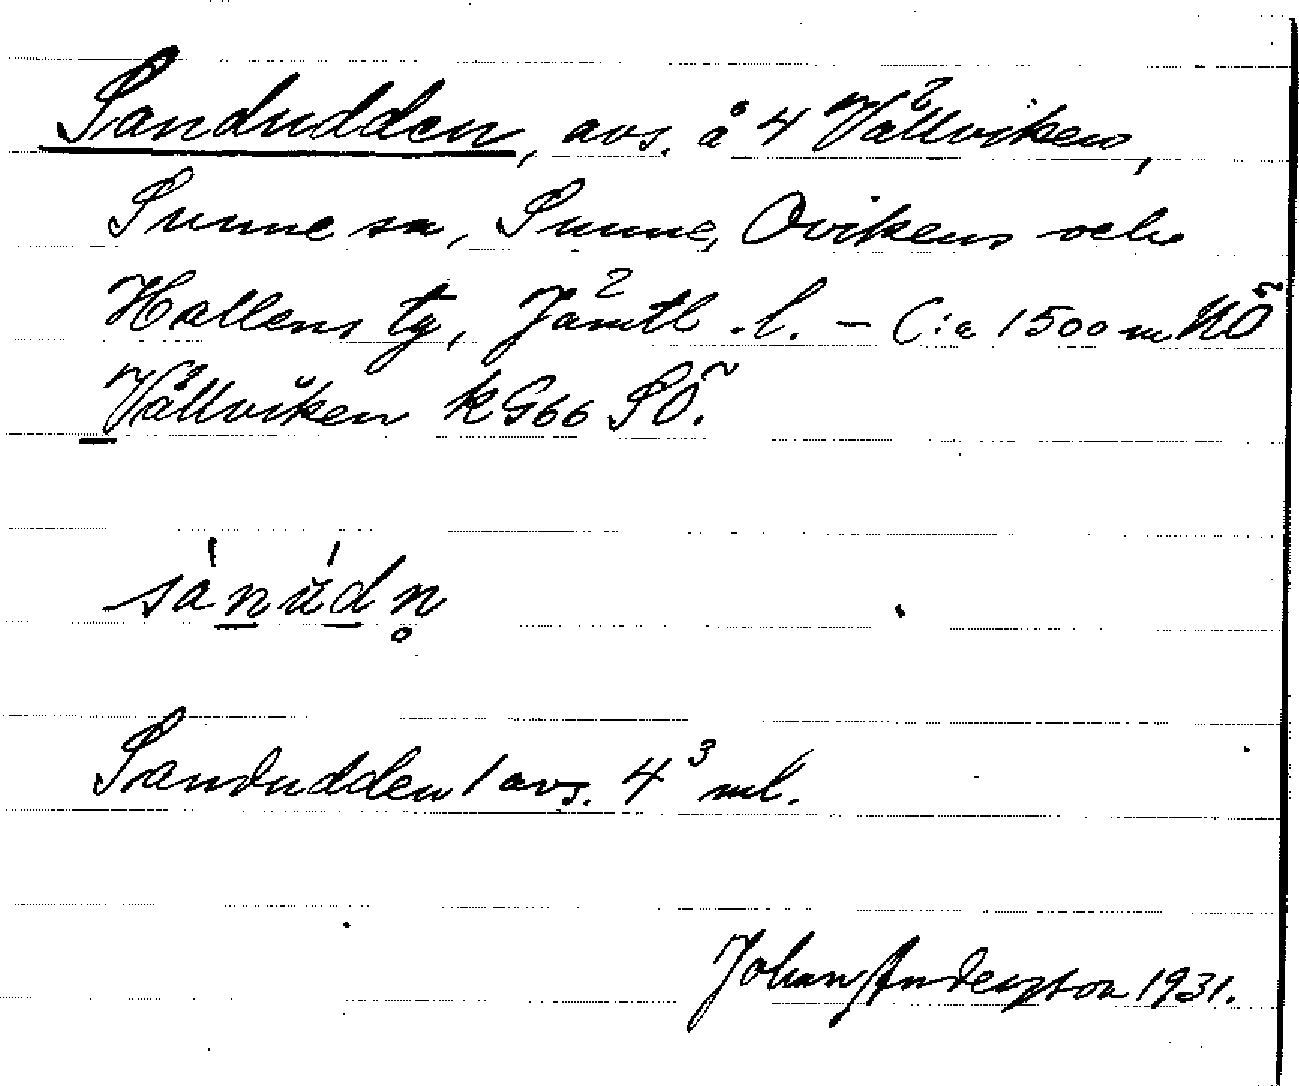 Sandudden, avs. å 4 Vällviken,
Sunne sn, Sunne, Ovikens och
Hallens tg, Jämtl. l. – C:a 1500 m NÖ
Vällviken kG66 SÖ.
sánúdn̥
Sandudden / avs. 4³ ml.
Johan Anderzton 1931.